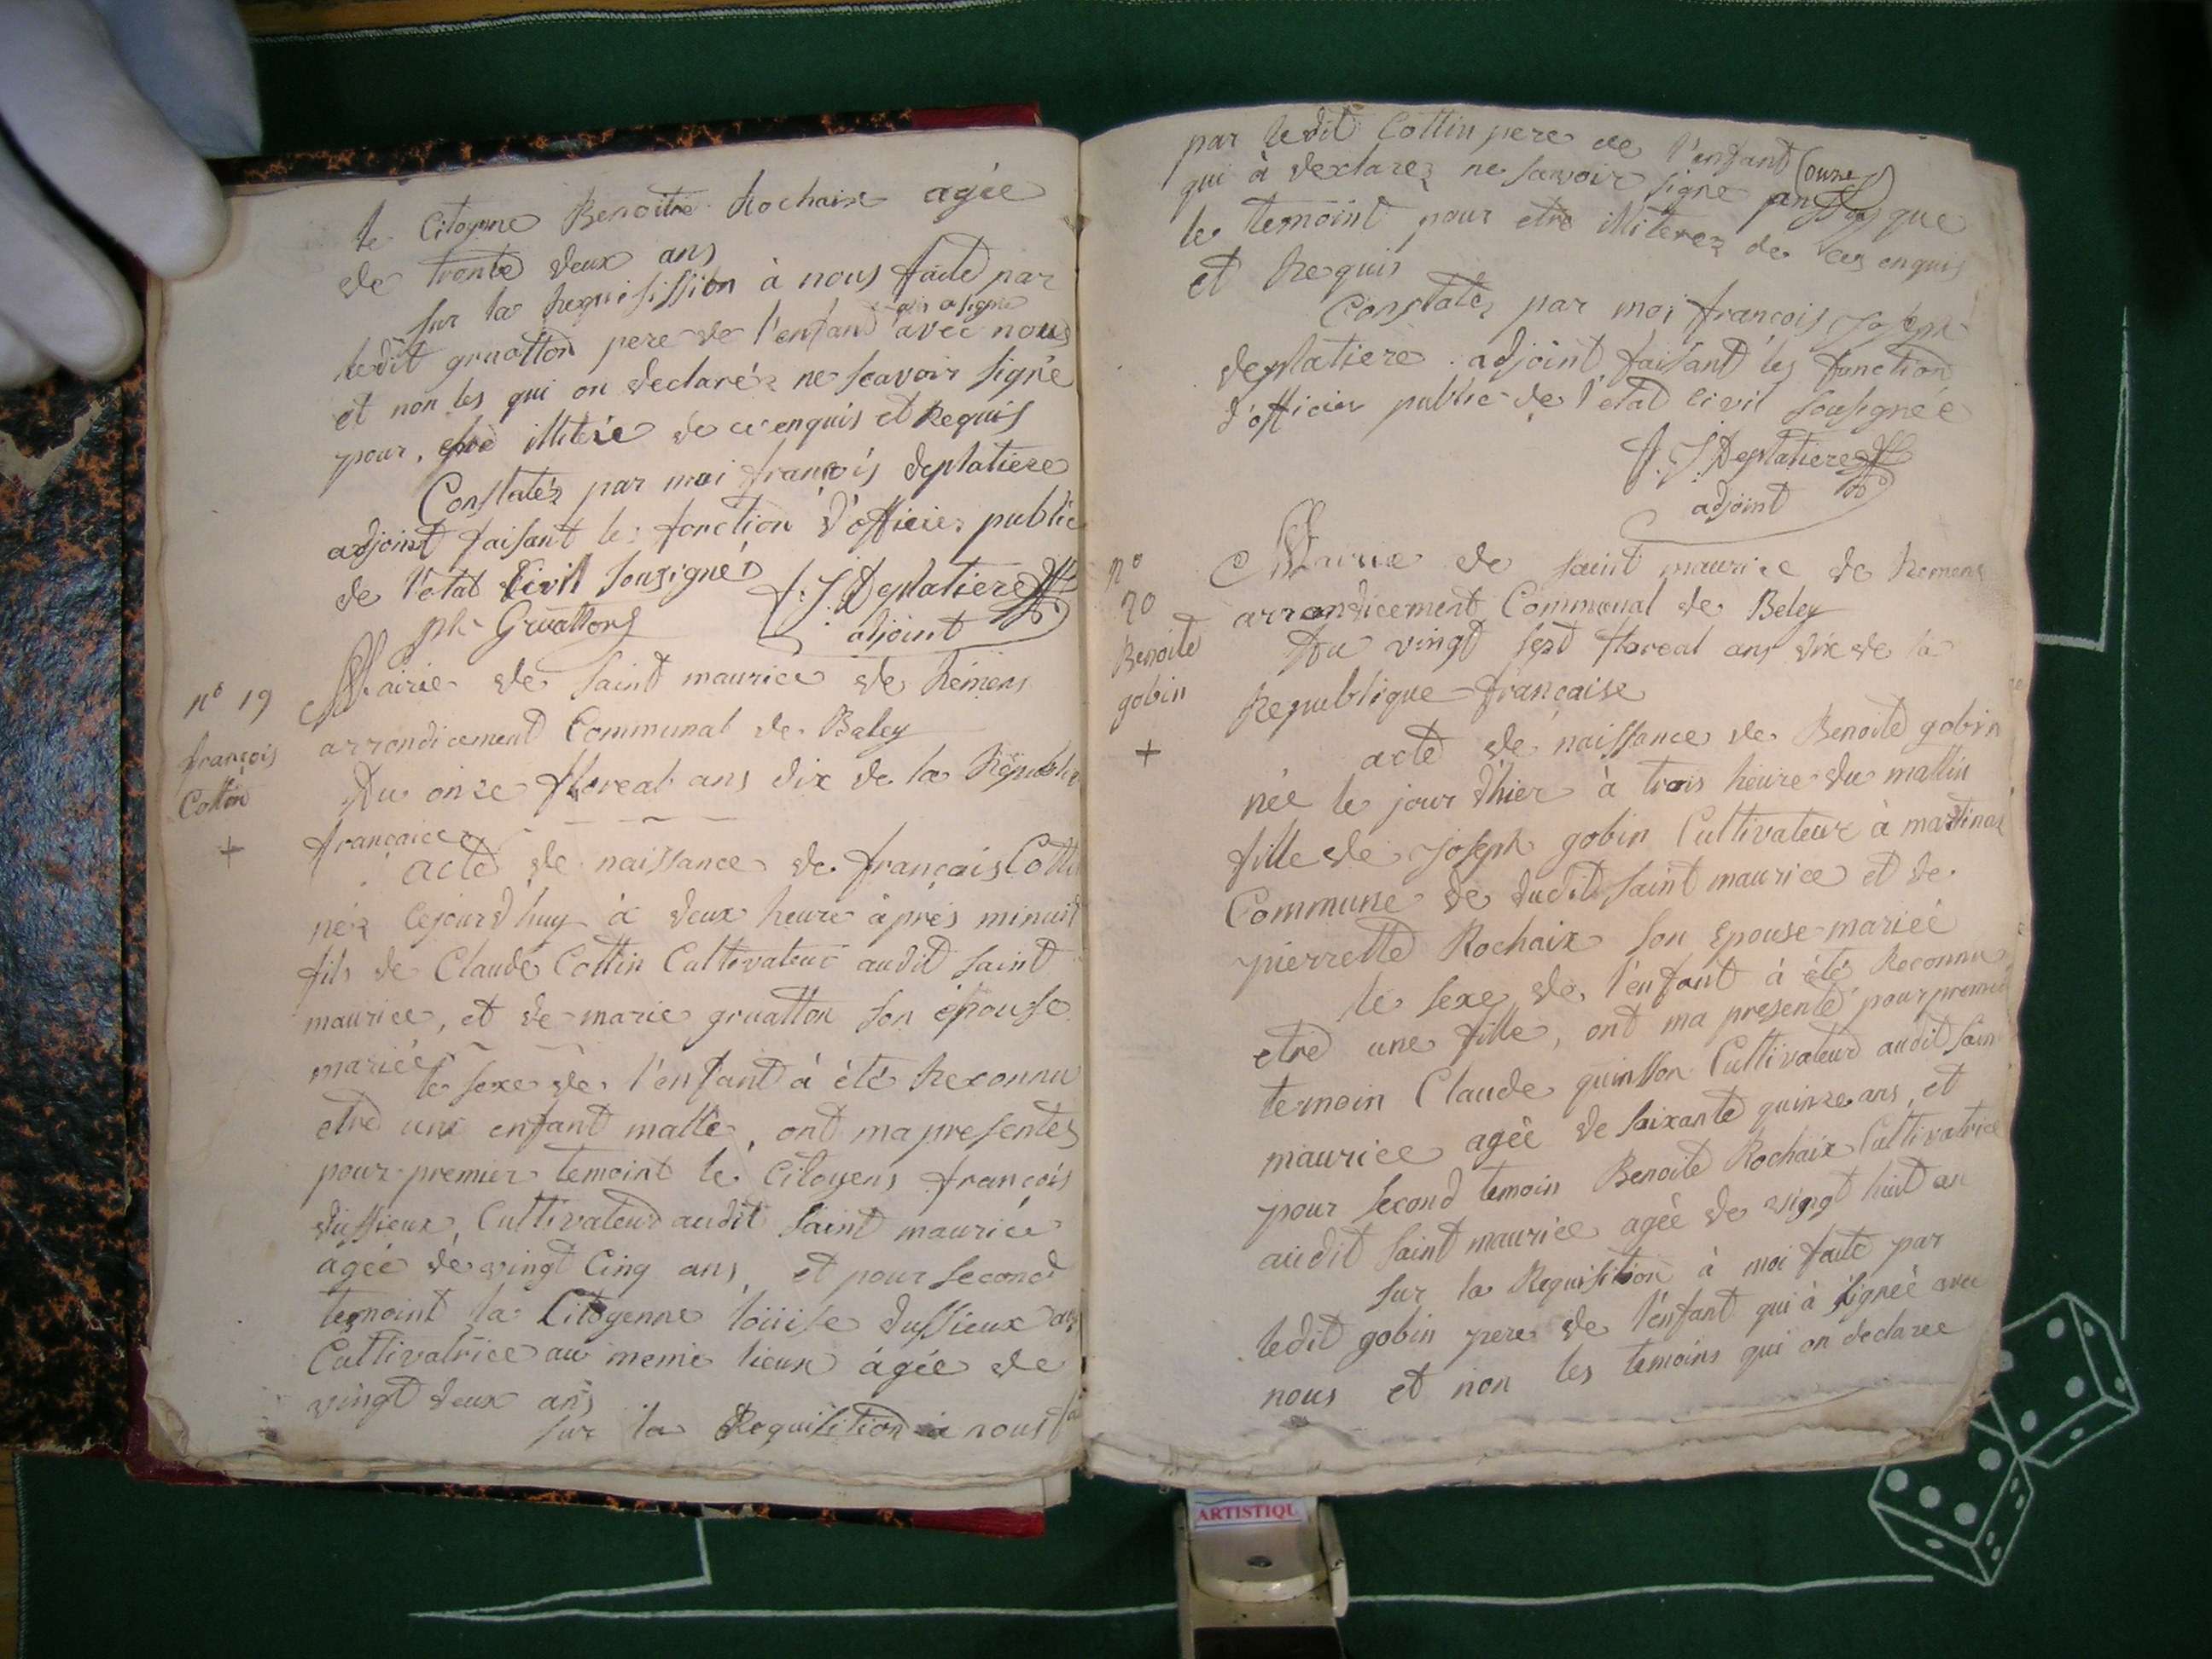 le Citoyenne Benoitte Rochaix agée
de trente deux ans
sur la Requisission à nous faite par
qui a signé
ledit gruatton pere de l'enfand avec nous
et non les qui on declaréz ne scavoir signé
pour, etre illiterée de ce enquis et Requis
Constatéz par moi françois deplatiere
adjoint faisant les fonction d'officier public
de l'etat Civil sousigné
ph Gruatton
f. J. Deplatiere
adjoint
n° 19
françois
Cottin
+
Mairie de saint maurice de Rémens
arrondicement Communal de Baley
Du onze floreal ans dix de la Républi
francaice
acte de naissance de françois Cotti
néz cejourd'huy à deux heure àprés minuit
fils de Claude Cottin Cultivateur audit saint
maurice, et de marie gruatton son épouse
mariée
le sexe de l'enfant à été Reconnu
etre une enfant malle, ont ma presentes
pour premier temoint le Citoyens françois
dussieux Cultivateur audit saint maurice
agée de vingt Cinq ans, et pour second
temoint la Citogenne loüise dussieux
Cultivatrice au meme lieux àgée de
vingt deux ans
sur la Requisition à nous fa
par ledit Cottin pere de l'enfant
qui à dexlarez ne savoir signe que
le temoint pour etre illiterez de ces enquis
et Requis
Constatez par moi françois Joseph
deplatiere adjoint faisant les fonction
d'officier public de l'etat Civil sousignée
f. J. Deplatiere
adjoint
n°
20
Benoite
gobin
+
Mairie de saint maurice de Remens
arrondicement Communal de Beley
Du vingt sept floreal ans dix de la
Republique française
acte de naissance de Benoite gobin
née le jour d'hier à trois heure du mattin
fille de Joseph gobin Cultivateur à martinaz
Commune de dudit saint maurice et de
pierrette Rochaix son Epouse mariée
le sexe de l'enfant à été Reconnu
etre une fille, ont ma presenté pour premie
temoin Claude quinsson Cultivateur audit sain
maurice agée de soixante quinze ans, et
pour second temoin Benoite Rochaix Cultivatrice
audit saint maurice agée de vingt huit an
sur la Requisition à moi faite par
ledit gobin pere de l'enfant qui à signéé avec
nous et non les temoins qui on declaree
ARTISTIQU